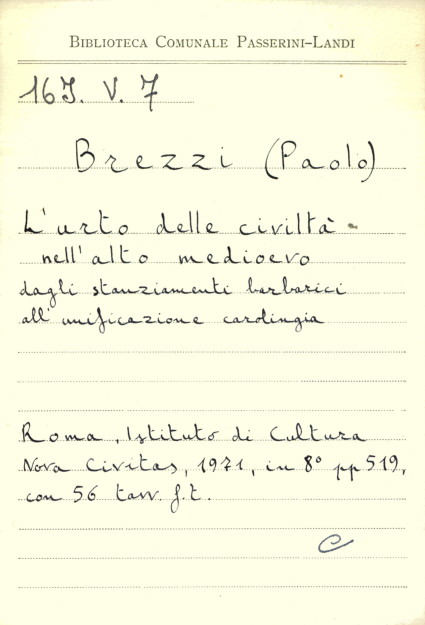 BIBLIOTECA COMUNALE PASSERINI-LANDI
16J. V. 7
Brezzi (Paolo)
L'urto delle civiltà
nell'alto medioevo
dagli stanziamenti barbarici
all'unificazione carolingia
Roma, Istituto di Cultura
Nova Civitas, 1971, in 8° pp 519,
con 56 tavv. f.t.
C